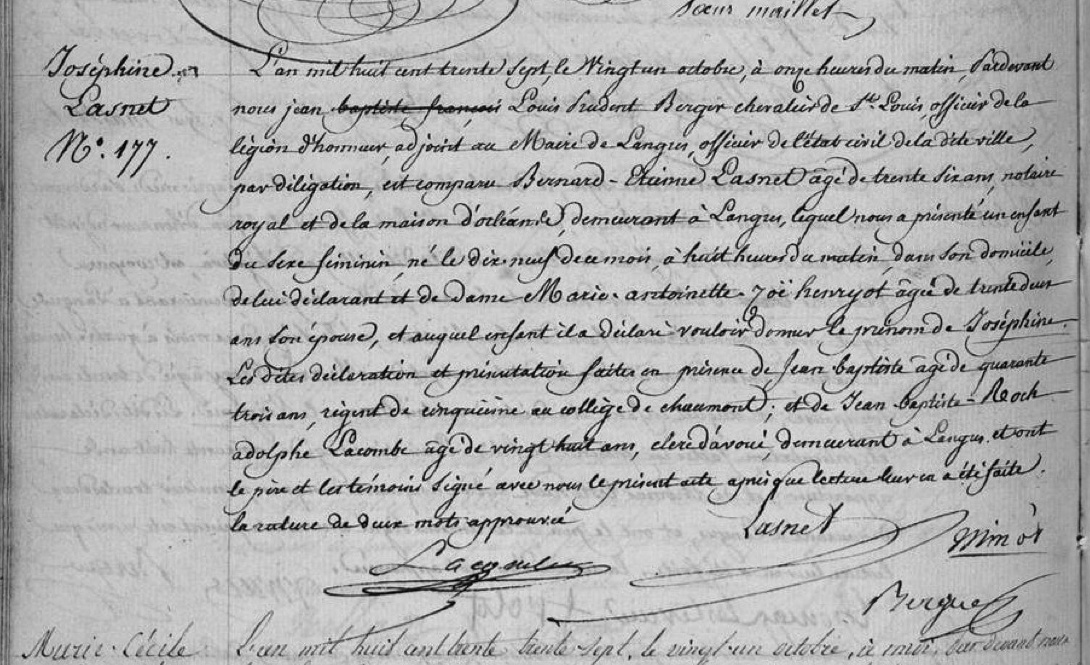 Sœur maillet
Joséphine
Lasnet
N.° 177.
L'an mil huit cent trente sept, le Vingt un octobre, à onze heures du matin, Pardevant
nous jean baptiste françois Louis Prudent Berger chevalier de St. Louis, officier de la
légion d'honneur, adjoint au Maire de Langres, officier de l'état civil de la dite ville,
par délégation, est comparu Bernard-Etienne Lasnet âgé de trente six ans, notaire
royal et de la maison d'orléans, demeurant à Langres, lequel nous a présenté un enfant
du sexe féminin, né le dix neuf de ce mois, à huit heures du matin, dans son domicile,
de lui déclarant et de dame Marie-antoinette-zoë henryot âgée de trente deux
ans son épouse, et auquel enfant il a déclaré vouloir donner le prénom de Joséphine.
Les dites déclaration et présentation faites en présence de Jean baptiste âgé de quarante
trois ans, régent de cinquième au collège de chaumont; et de Jean-baptiste-Roch
adolphe Lacombe âgé de vingt huit ans, clerc d'avoué, demeurant à Langres, et ont
le père et les témoins signé avec nous le présent acte après que lecture leur en a été faite.
la rature de deux mots approuvée
Lasnet
Minot
Lacombe
Berger
Marie-Cécile L'an mil huit cent trente trente sept, le vingt un octobre, à midi, par devant nous